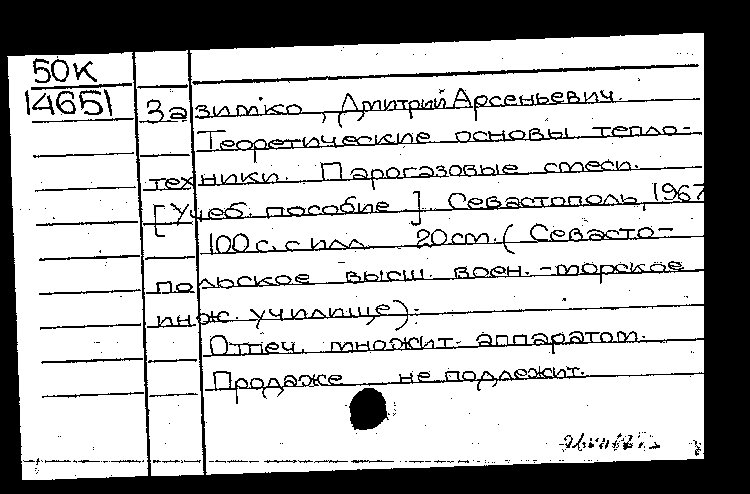 50К
14651
Зазимко, Дмитрий Арсеньевич.
Теоретические основы тепло-
техники. Парогазовые смеси.
[Учеб. пособие]. Севастополь, 1967
100 с. с илл. 20 см. (Севасто-
польское высш. воен.-морское
инж. училище).
Отпеч. множит. аппаратом.
Продаже не подлежит.